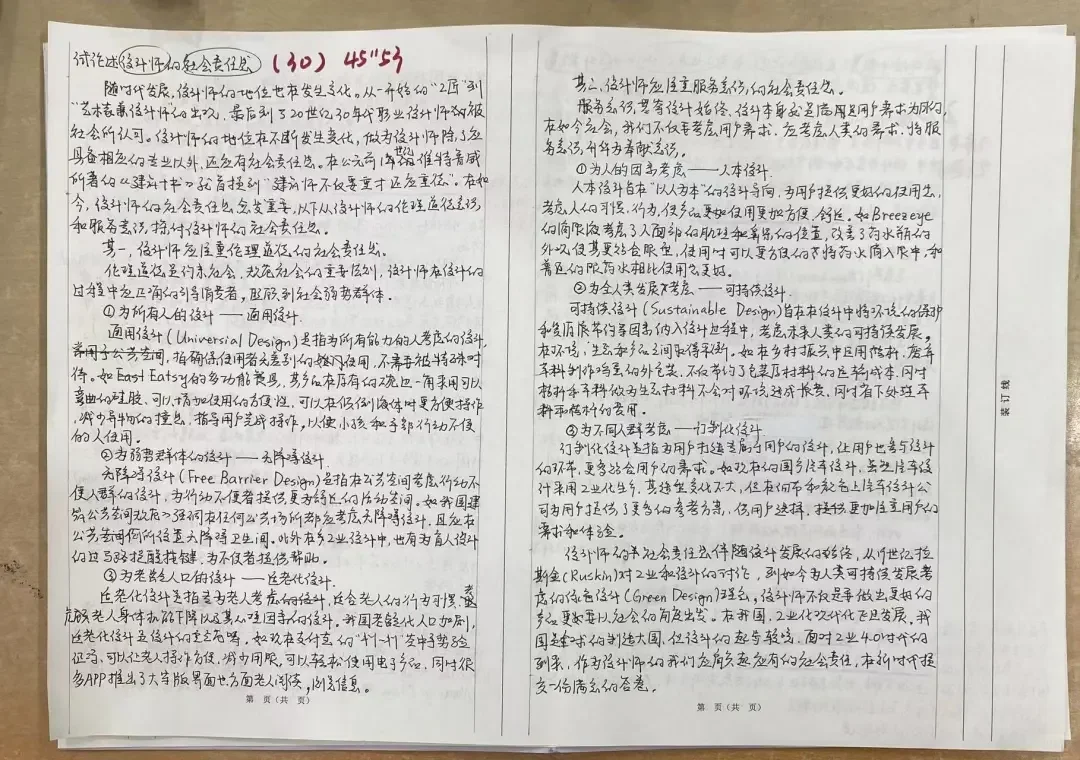 试论述设计师的社会责任感 (30) 45"53
随时代发展,设计师的地位也在发生变化。从一开始的"工匠"到
"艺术家兼设计师"的出现,最后到了20世纪30年代职业设计师被
社会所认可。设计师的地位在不断发生变化,做为设计师除了应
具备相应的专业以外,还应有社会责任感。在公元前1世纪维特鲁威
所著的《建筑十书》就曾提到"建筑师不仅要重才还应重德"。在如
今,设计师的社会责任感愈发重要,以下从设计师的伦理道德意识
和服务意识,探讨设计师的社会责任感。
其一,设计师应注重伦理道德的社会责任感。
伦理道德是约束社会、规范社会的重要原则,设计师在设计的
过程中应正确的引导消费者,照顾到社会弱势群体。
①为所有人的设计——通用设计.
通用设计(Universial Design)是指为所有能力的人考虑的设计,
指确保使用者无差别的使用,不需要被特殊对
待。如East Eatsy的多功能餐具,其产品在原有的碗边一角采用可以
弯曲的硅胶,可以增加使用的方便性,可以在倾倒液体时更方便操作
,减少异物的撞急,指导用户完成操作,以便小孩和手部行动不便
的人使用。
②为弱势群体的设计——无障碍设计.
无障碍设计(Free Barrier Design)是指在公共空间考虑行动不
便人群的设计,为行动不便者提供更为舒适的活动空间。如我国建
筑公共空间规范》强调在任何公共场所都应考虑无障碍设计,且应在
公共空间厕所设置无障碍卫生间。此外在产品设计中,也有为盲人设计
的过马路提醒按键,为不便者提供帮助。
③为老龄人口的设计——适老化设计.
适老化设计是指为老人考虑的设计,适合老人的行为习惯,考
虑老人身体机能下降以及其心理因素的设计。我国老龄化人口加剧,
适老化设计是设计的重点。如现在支付宝的"扫一扫"中手势验
证码,可以让老人操作方便,减少困难,可以轻松使用电子产品,同时很
多APP推出了大字版界面也方面老人阅读,浏览信息。
第 页(共 页)
其二,设计师应注重服务意识的社会责任感.
服务意识贯穿设计始终,设计本身就是应用是用户需求为目的,
在如今社会,我们不仅要考虑用户需求,应考虑人类的需求,将服
务意识升华为奉献意识。
①为人的因素考虑——人本设计.
人本设计旨在"以人为本"的设计导向,为用户提供更好的使用感,
考虑人的习惯,行为,使产品更加使用更加方便、舒适。如Breezeye
的滴眼液考虑了人面部的肌理和鼻梁的位置,改善了药水瓶的
外观使其更贴合眼型,使用时可以更方便的将药水滴入眼中,和
普通的眼药水相比使用感更好。
②为全人类发展考虑——可持续设计.
可持续设计(Sustainable Design)旨在在设计中将环境的保护
和发展等的等因素纳入设计过程中,考虑未来人类的可持续发展。
在环境、生态和产品之间取得平衡。如在乡村振兴中运用秸秆、废弃
草料制作鸡蛋的外包装,不仅节约了包装原材料的运输成本,同时
秸秆禾草料做为生态材料不会对环境造成损害,同时省下处理草
料和秸秆的费用。
③为不同人群考虑——订制化设计
订制化设计是指为用户打造专属于用户的设计,让用户也参与设计
的环节,更贴合用户的需求。如现在的国产汽车设计,虽然汽车设
计采用工业化生产,其造型变化不大,但在内饰和配色上汽车设计公
司为用户提供了更多的参考方案,供用户选择,提供更加注重用户的
需求和体验。
设计师的社会责任感伴随设计发展的始终,从19世纪拉
斯金(Ruskin)对工业和设计的讨论,到如今为人类可持续发展考
虑的绿色设计(Green Design)理念,设计师不仅是要做出更好的
产品更要以社会的角度出发。在我国,工业化现代化飞速发展,我
国是全球的制造大国,但设计的起步较晚,面对工业4.0时代的
到来,作为设计师的我们应肩负应有的社会责任,在新时代提
交一份满意的答卷。
第 页(共 页)
装订线